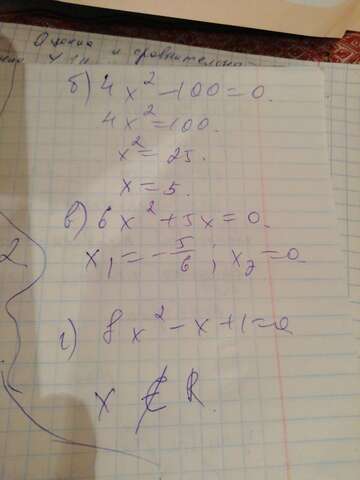 Оценка и сравнительно
б) 4x² - 100 = 0.
4x² = 100.
x² = 25.
x = 5.
в) 6x² + 5x = 0.
x₁ = -5/6; x₂ = 0
г) 8x² - x + 1 = 0
x ∉ R.
2